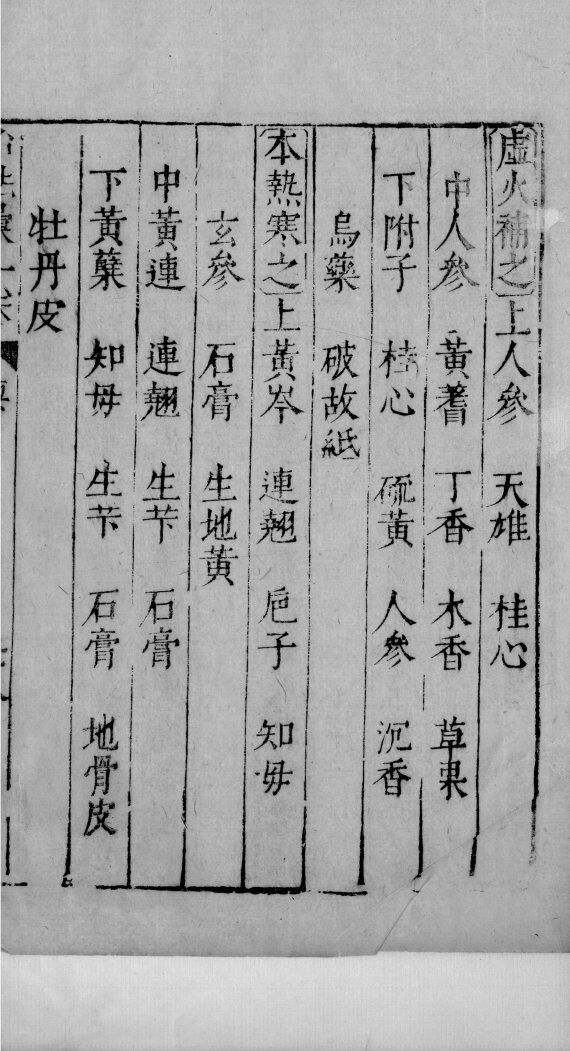 虛火補之上人參　天雄　桂心
中人參　黃蓍　丁香　木香　草果
下附子　桂心　硫黃　人參　沉香
烏藥　破故紙
本熱寒之上黃岑　連翹　巵子　知毋
玄參　石膏　生地黃
中黃連　連翹　生芐　石膏
下黃蘖　知毋　生芐　石膏　地骨皮
牡丹皮